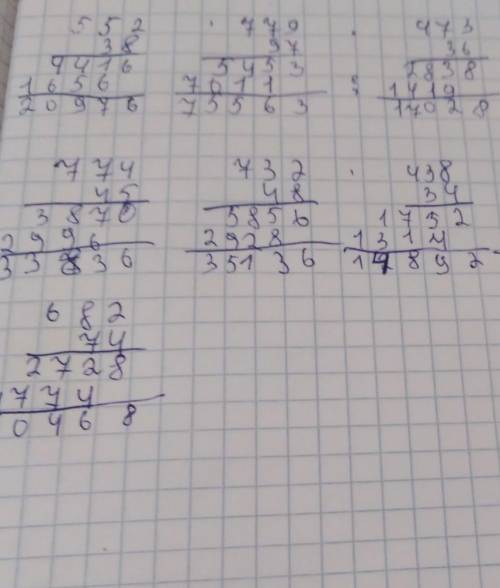 552
38
4416
1656
20976
779
97
5453
7011
75563
473
36
2838
1419
17028
774
45
3870
2996
33836
732
48
5856
2928
35136
438
34
1752
1314
14892
682
74
2728
774
0468